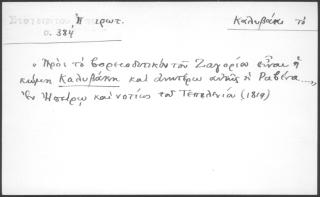 Ἠπειρωτ. Καλυβάκι τὸ
σ. 384
„ Πρὸς τὸ βορειοδυτικὸν τοῦ Ζαγορίου εἶναι ἡ
κώμη Καλυβάκη καὶ ἀνωτέρω αὐτῆς ἡ Ραβένα...„
Ἐν Ἠπείρῳ καὶ νοτίως τοῦ Τεπελενίου (1819)